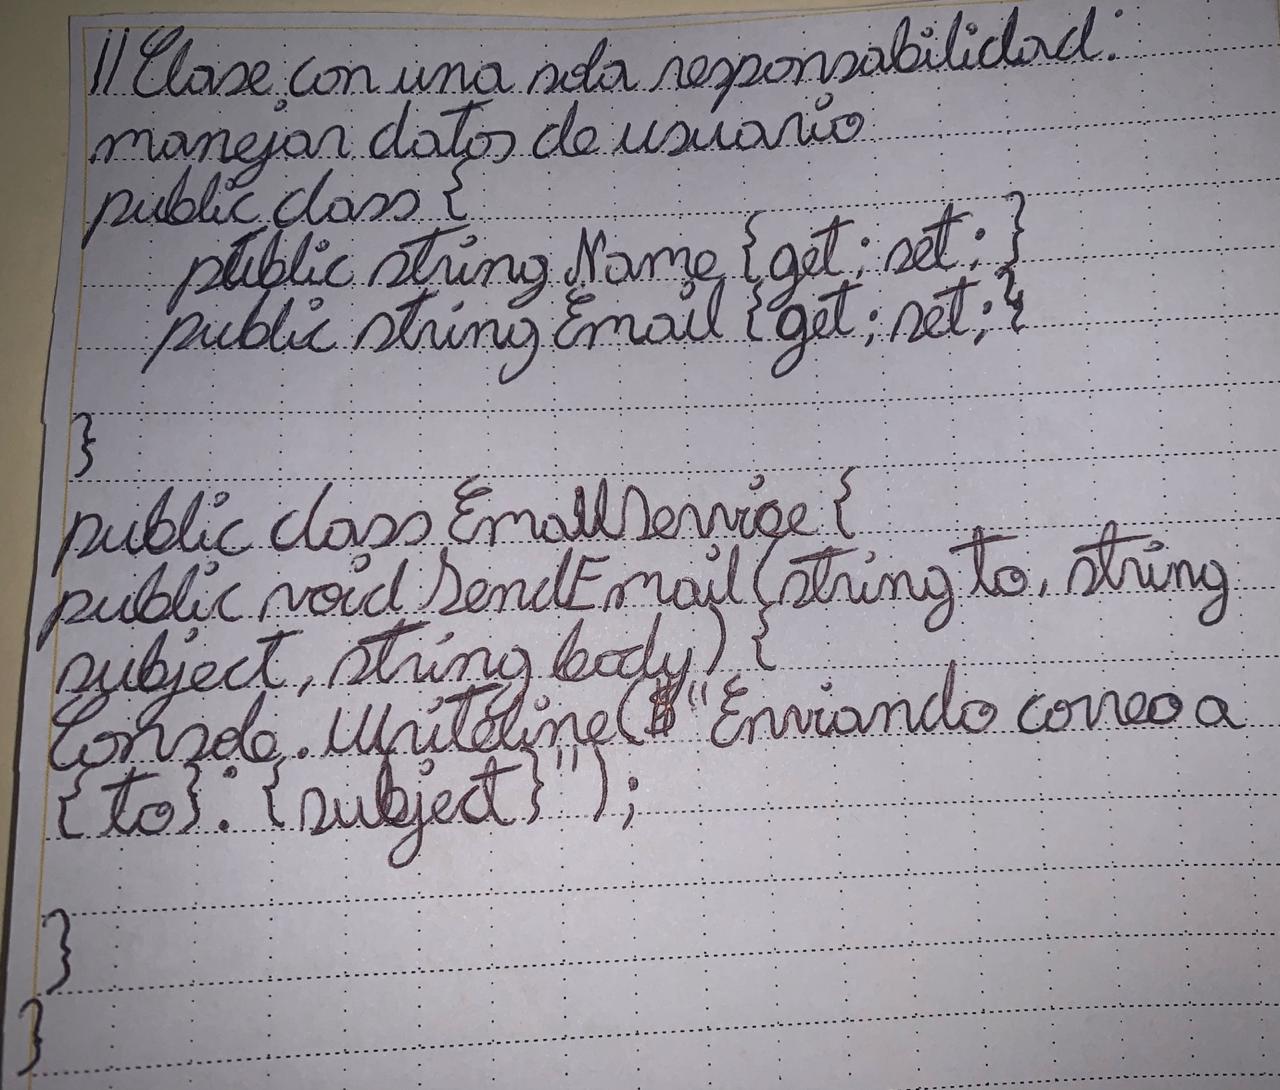 // Clase con una sola responsabilidad:
manejar datos de usuario
public class {
public string Name {get; set; }
public string Email {get; set; }
}
public class EmailService {
public void SendEmail(string to, string
subject, string body) {
Console.WriteLine($"Enviando correo a
{to}: {subject}");
}
}